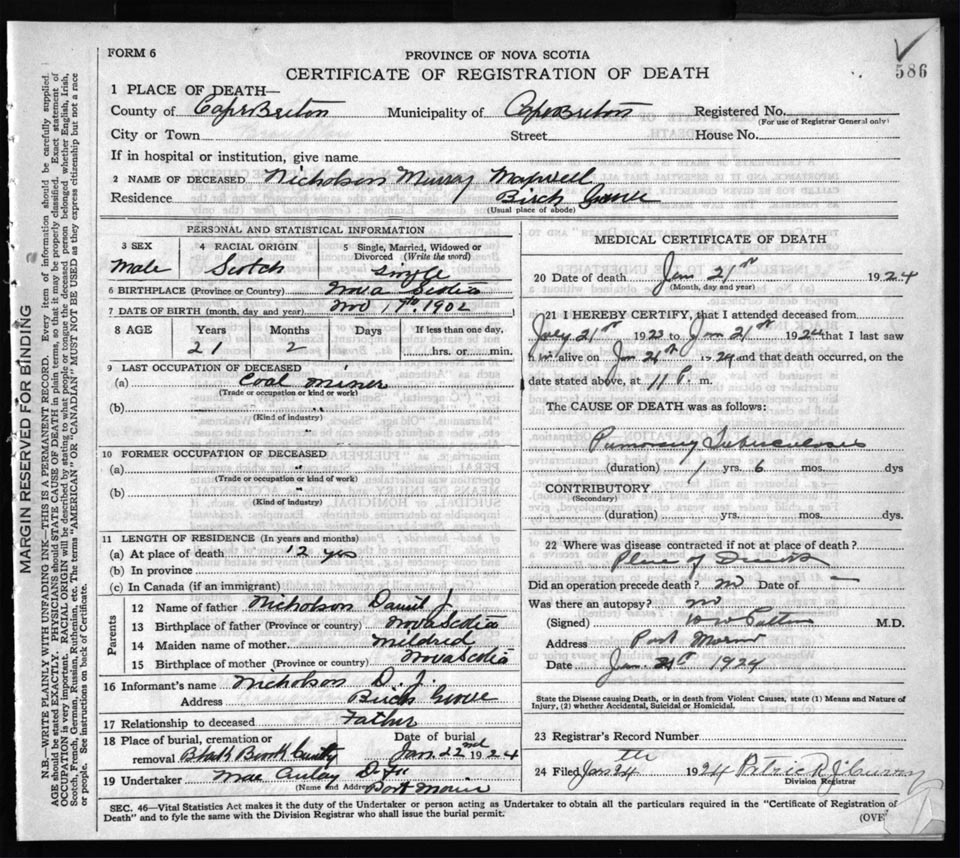 FORM 6
586
PROVINCE OF NOVA SCOTIA
CERTIFICATE OF REGISTRATION OF DEATH
1 PLACE OF DEATH—
County of Cape Breton Municipality of Cape Breton Registered No.
(For use of Registrar General only)
City or Town Street House No.
If in hospital or institution, give name
2 NAME OF DECEASED Nicholson Murray Maxwell
Residence Birch Grove
(Usual place of abode)
PERSONAL AND STATISTICAL INFORMATION
3 SEX 4 RACIAL ORIGIN 5 Single, Married, Widowed or Divorced (Write the word)
Male Scotch Single
6 BIRTHPLACE (Province or Country) Nova Scotia
7 DATE OF BIRTH (month, day and year) Nov 17th 1902
8 AGE Years Months Days If less than one day,
21 2 hrs. or min.
9 LAST OCCUPATION OF DECEASED
(a) Coal miner
(Trade or occupation or kind or work)
(b) "
(Kind of industry)
10 FORMER OCCUPATION OF DECEASED
(a) "
(Trade or occupation or kind of work)
(b) "
(Kind of industry)
11 LENGTH OF RESIDENCE (In years and months)
(a) At place of death 12 yrs
(b) In province
(c) In Canada (if an immigrant)
Parents
12 Name of father Nicholson Daniel J.
13 Birthplace of father (Province or country) Nova Scotia
14 Maiden name of mother Mildred
15 Birthplace of mother (Province or country) Nova Scotia
16 Informant's name Nicholson D. J.
Address Birch Grove
17 Relationship to deceased Father
18 Place of burial, cremation or removal Black Brook
Date of burial Jan. 22nd 1924
19 Undertaker MacAulay
(Name and Address) Port Morien
MEDICAL CERTIFICATE OF DEATH
20 Date of death Jan 21st 1924
(Month, day and year)
21 I HEREBY CERTIFY, that I attended deceased from
July 21st 1923 to Jan 21st 1924 that I last saw
him alive on Jan 21st 1924 and that death occurred, on the
date stated above, at 11 P. m.
The CAUSE OF DEATH was as follows:
Pulmonary Tuberculosis
(duration) 1 yrs. 6 mos. dys
CONTRIBUTORY
(Secondary)
(duration) yrs. mos. dys.
22 Where was disease contracted if not at place of death?
Place of Death
Did an operation precede death? no Date of —
Was there an autopsy? no
(Signed) M.D.
Address Port Morien
Date Jan. 21st 1924
State the Disease causing Death, or in death from Violent Causes, state (1) Means and Nature of
Injury, (2) whether Accidental, Suicidal or Homicidal.
23 Registrar's Record Number
24 Filed Jan 24th 1924 Patrick
Division Registrar
SEC. 46—Vital Statistics Act makes it the duty of the Undertaker or person acting as Undertaker to obtain all the particulars required in the "Certificate of Registration of
Death" and to fyle the same with the Division Registrar who shall issue the burial permit.
(OVE
MARGIN RESERVED FOR BINDING
N.B.—WRITE PLAINLY WITH UNFADING INK—THIS IS A PERMANENT RECORD. Every item of information should be carefully supplied.
AGE should be stated EXACTLY. PHYSICIANS should STATE CAUSE OF DEATH in plain terms, so that it may be properly classified. Exact statement of
OCCUPATION is very important. RACIAL ORIGIN will be described by stating to what people or tongue the deceased person belonged whether English, Irish,
Scotch, French, German, Russian, Ruthenian, etc. The terms "AMERICAN" or "CANADIAN" MUST NOT BE USED as they express citizenship but not a race
or people. See instructions on back of Certificate.